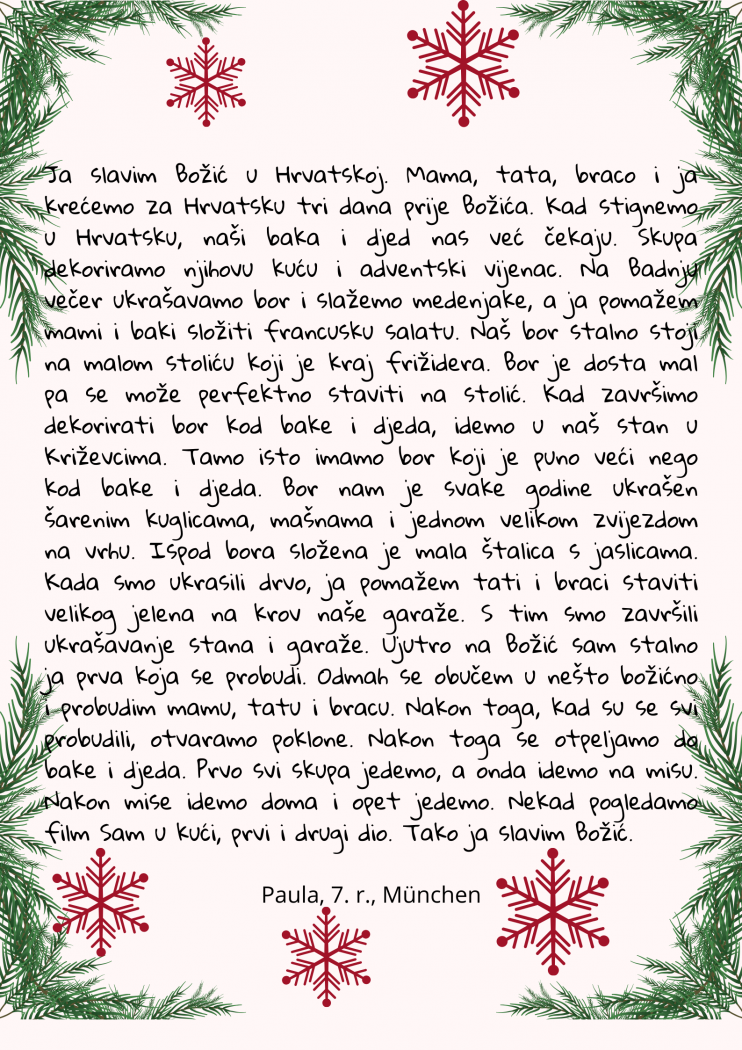 Ja slavim Božić u Hrvatskoj. Mama, tata, braco i ja
krećemo za Hrvatsku tri dana prije Božića. Kad stignemo
u Hrvatsku, naši baka i djed nas već čekaju. Skupa
dekoriramo njihovu kuću i adventski vijenac. Na Badnju
večer ukrašavamo bor i slažemo medenjake, a ja pomažem
mami i baki složiti francusku salatu. Naš bor stalno stoji
na malom stoliću koji je kraj frižidera. Bor je dosta mal
pa se može perfektno staviti na stolić. Kad završimo
dekorirati bor kod bake i djeda, idemo u naš stan u
Križevcima. Tamo isto imamo bor koji je puno veći nego
kod bake i djeda. Bor nam je svake godine ukrašen
šarenim kuglicama, mašnama i jednom velikom zvijezdom
na vrhu. Ispod bora složena je mala štalica s jaslicama.
Kada smo ukrasili drvo, ja pomažem tati i braci staviti
velikog jelena na krov naše garaže. S tim smo završili
ukrašavanje stana i garaže. Ujutro na Božić sam stalno
ja prva koja se probudi. Odmah se obučem u nešto božićno
i probudim mamu, tatu i bracu. Nakon toga, kad su se svi
probudili, otvaramo poklone. Nakon toga se otpeljamo do
bake i djeda. Prvo svi skupa jedemo, a onda idemo na misu.
Nakon mise idemo doma i opet jedemo. Nekad pogledamo
film Sam u kući, prvi i drugi dio. Tako ja slavim Božić.
Paula, 7. r., München